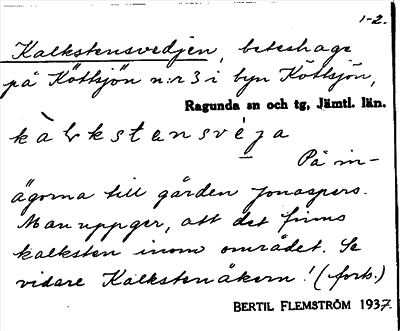 1-2.
Kalkstensvedjen, beteshage
på Köttsjön n:r 3 i byn Köttsjön,
Ragunda sn och tg, Jämtl. län.
kàlkstensvēja
På in-
ägorna till gården Jonaspers.
Man uppger, att det finns
kalksten inom området. Se
vidare Kalkstenåkern! (forts.)
BERTIL FLEMSTRÖM 1937.